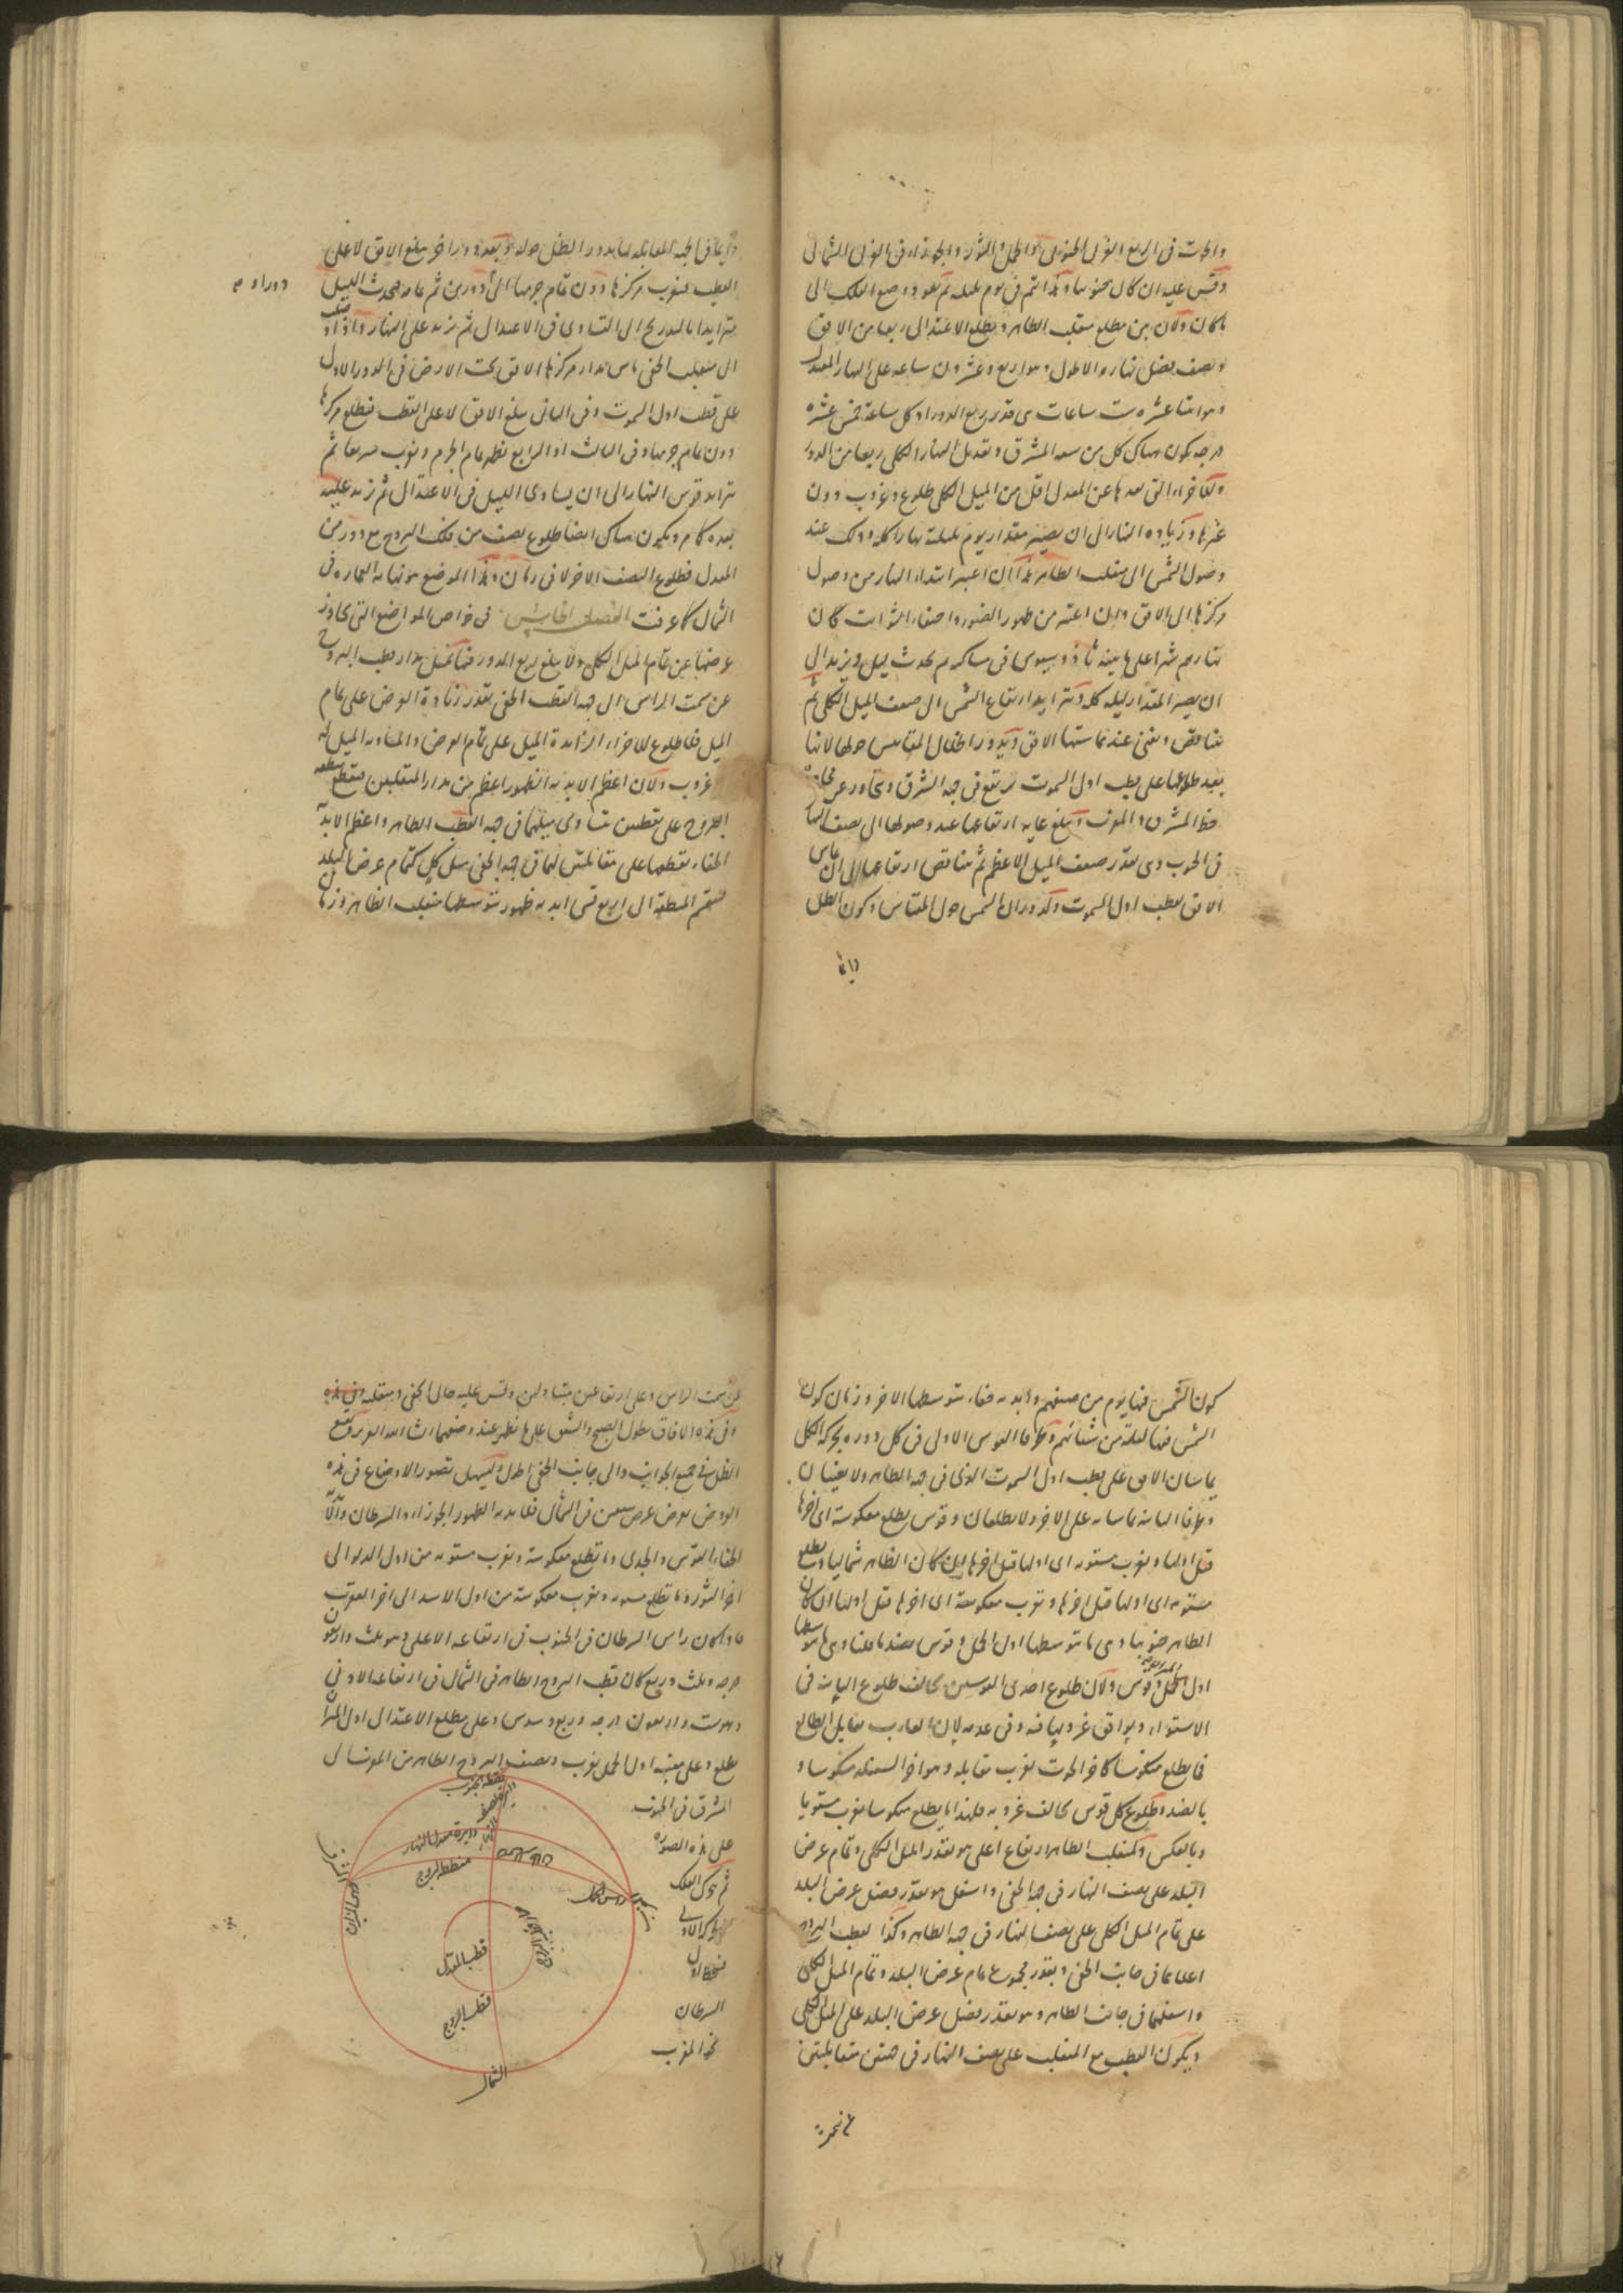 والحوت فى الربع الغربى الجنوبى والحمل والثور والجوزاء فى الغربى الشمالى
وقس عليه ان كان جنوبيا وكذا يتم فى يوم بليلته ثم يعود وضع الفلك الى
ما كان ولان بين مطلع منقلب الظاهر ومطلع الاعتدال ربعا من الافق
ونصف فضل نهاره الاطول وهو اربع وعشرون ساعة على النهار المعتدل
وهو اثنا عشرة ست ساعات هى قدر ربع الدور اذ كل ساعة خمس عشرة
درجة يكون هناك كل من سعة المشرق وتعديل النهار الكلى ربعا من الدور
وللاجزاء التى بعدها عن المعدل اقل من الميل الكلى طلوع وغروب دون
غيرها وزيادة النهار الى ان يصير مقدار يوم بليلته نهارا كله وذلك عند
وصول الشمس الى منقلب الظاهر هذا ان اعتبر ابتداء النهار من وصول
مركزها الى الافق وان اعتبر من ظهور الضوء واختفاء الثوابت كان
نهارهم شهرا على ما بينه ثاوذوسيوس فى مساكنه ثم يحدث ليل ويزيد الى
ان يصير المقدار ليلة كله وتزايد ارتفاع الشمس الى ضعف الميل الكلى ثم
يتناقص وتفنى عند مماستها الافق ويدور اظلال المقاييس حولها لانها
بعيد طلوعها على قطب اول السموت ترتفع فى جهة الشرق وتجاوز عن محاذاة
خط المشرق والمغرب وتبلغ غاية ارتفاعها عند وصولها الى نصف النهار
فى الجنوب وهى بقدر ضعف الميل الاعظم ثم يتناقص ارتفاعها الى ان تماس
الافق بقطب اول السموت وكدوران الشمس حول المقياس وكون الظل
دائما
دائما فى الجهة المقابلة لها يدور الظل حوله وبعد دور اخر يبلغ الافق لا على
القطب فيغرب مركزها دون تمام جرمها الى دورين ثم تمامه فيحدث الليل
دورا و م
متزايدا بالتدريج الى التساوى فى الاعتدال ثم يزيد على النهار واذا وصلت
الى منقلب الخفى ماس مدار مركزها الافق تحت الارض فى الدور الاول
على قطب اول السموت وفى الثانى يبلغ الافق لا على القطب فيطلع مركزها
دون تمام جرمها وفى الثالث او الرابع يظهر تمام الجرم ويغرب سريعا ثم
يتزايد قوس النهار الى ان يساوى الليل فى الاعتدال ثم يزيد عليه
بعده كما مر ويكون هناك ايضا طلوع نصف من فلك البروج مع دور من
المعدل فطلوع النصف الاخر لا فى زمان وهذا الموضع هو نهاية العمارة فى
الشمال كما عرفت الفصل الخامس فى خواص المواضع التى تجاوز
عرضها عن تمام الميل الكلى ولا يبلغ ربع الدور فيها يميل مدار قطب البروج
عن سمت الراس الى جهة القطب الخفى بقدر زيادة العرض على تمام
الميل فلا طلوع للاجزاء الزائدة الميل على تمام العرض والمساوية الميل له
غروب ولان اعظم الابدية الظهور اعظم من مدار المنقلبين فيقطع منطقة
البروج على نقطتين يتساوى ميلهما فى جهة القطب الظاهر واعظم الابدية
الخفاء يقطعها على مقابلتيهما فى جهة الخفى ميل كل كتمام عرض البلد
فينقسم المنطقة الى اربع قسى ابدية ظهور يتوسطها منقلب الظاهر وزمان
كون الشمس فيها يوم من صيفهم وابدية خفاء يتوسطها الاخر وزمان كون
الشمس فيها ليلة من شتائهم وطرفا القوس الاولى فى كل دورة بحركة الكل
يماسان الافق على قطب اول السموت الذى فى جهة الظاهر ولا يغيبان
وطرفا الثانية يماسانه على الاخر ولا يطلعان وقوس يطلع معكوسة اى اخرها
قبل اولها ويغرب مستوية اى اولها قبل اخرها ان كان الظاهر شماليا ويطلع
مستوية اى اولها قبل اخرها ويغرب معكوسة اى اخرها قبل اولها ان كان
الظاهر جنوبيا وهى ما يتوسطها اول الحمل وقوس بضد ما قلنا وهى ما يتوسطها
اول الميزان ولان طلوع احدى القوسين يخالف طلوع الثانية فى
الاستواء ويوافق غروبها فيه وفى عدمه لان الغارب مقابل الطالع
فما يطلع منكوسا كاخر الحوت يغرب مقابله وهو اخر السنبلة منكوسا و
بالضد وطلوع كل قوس يخالف غروبه فلهذا ما يطلع منكوسا يغرب مستويا
وبالعكس ولمنقلب الظاهر ارتفاع اعلى هو بقدر الميل الكلى وتمام عرض
البلد على نصف النهار فى جهة الخفى واسفل هو بقدر فضل عرض البلد
على تمام الميل الكلى على نصف النهار فى جهة الظاهر وكذا لقطب البروج
اعلاهما فى جانب الخفى وبقدر مجموع تمام عرض البلد وتمام الميل الكلى
واسفلهما فى جانب الظاهر وهو بقدر فضل عرض البلد على الميل الكلى
ويكون القطب مع المنقلب على نصف النهار فى جهتين متقابلتين
عن سمت الراس وعلى ارتفاعين متبادلين وقس عليه حال الخفى ومنقلبه وفى هذه
وفى هذه الافاق يطول الصبح والشفق على ما يظهر عند وصفهما ان شاء الله العزيز ويقع
الظل فى جميع الجوانب والى جانب الخفى اطول وليسهل تصور الاوضاع فى هذه
العروض نعرض عرض سبعين فى الشمال فابدية الظهور الجوزاء والسرطان وابدية
الخفاء القوس والجدى وما تطلع معكوسة وتغرب مستوية من اول الدلو الى
اخر الثور وما تطلع مستوية وتغرب معكوسة من اول الاسد الى اخر العقرب
فاذا كان راس السرطان فى الجنوب فى ارتفاعه الاعلى وهو ثلث واربعون
درجة وثلث وربع كان قطب البروج الظاهر فى الشمال فى ارتفاعه الادنى
وهو ست واربعون درجة وربع وسدس وعلى مطلع الاعتدال اول الميزان
يطلع وعلى مغيبه اول الحمل يغرب ونصف البروج الظاهر من المغرب الى
المشرق فى الجنوب
على هذه الصورة
ثم تحرك الفلك
بالحركة الاولى
فينحط اول
السرطان
نحو المغرب
نقطة الجنوب
دائرة نصف النهار
دائرة معدل النهار
منطقة البروج
راس السرطان
المشرق
راس الميزان
راس الحمل
قطب المعدل
قطب البروج
الشمال